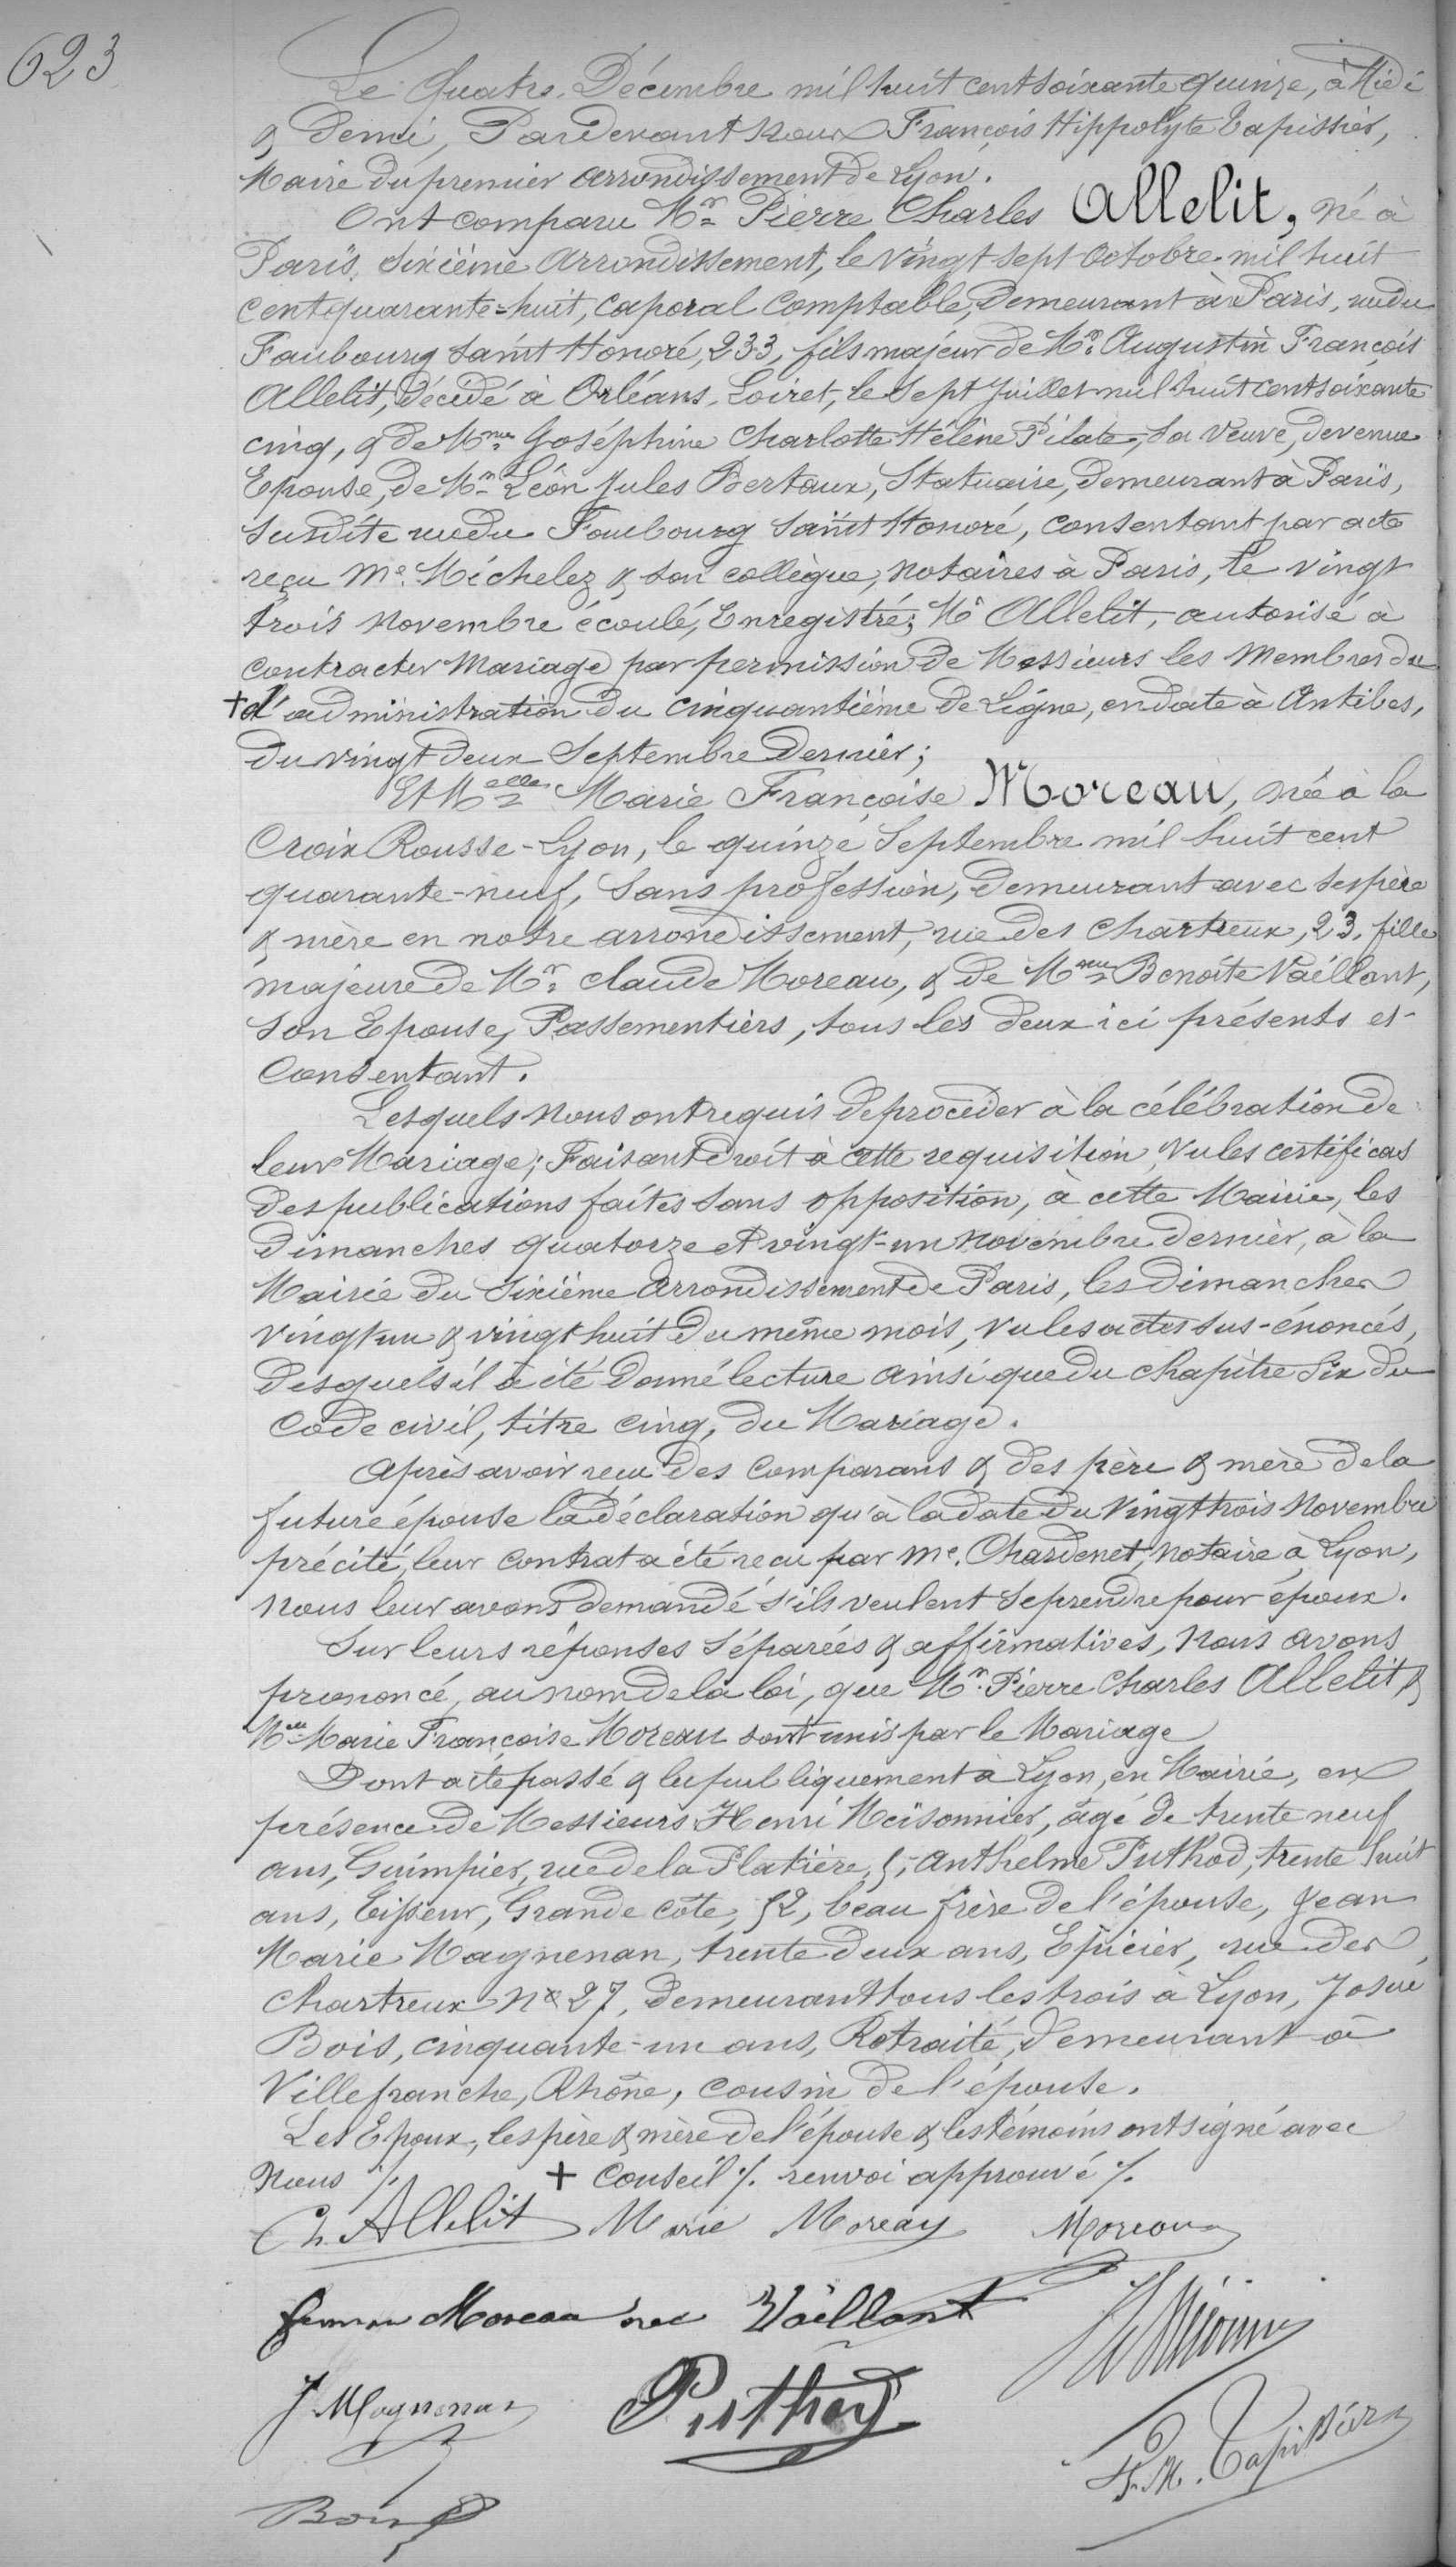 623
Le Quatre Décembre mil huit cent soixante quinze, à Midi
& Demi, Pardevant Nous François Hippolyte Tapissier,
Maire du premier arrondissement de Lyon.
Ont comparu Mr Pierre Charles Allelit, né à
Paris, sixième arrondissement, le vingt sept octobre mil huit
cent quarante-huit, caporal comptable, demeurant à Paris, rue du
Faubourg saint Honoré, 233, fils majeur de Mr. Augustin François
Allelit, Décédé à Orléans, Loiret, le sept juillet mil huit cent soixante
cinq, & de Mme Joséphine Charlotte Hélène Pilate, sa veuve, devenue
Epouse de Mr Léon Jules Bertaux, Statuaire, demeurant à Paris,
susdite rue du Faubourg saint Honoré, consentant par acte
reçu Me. Méchelez & son collègue, notaires à Paris, le vingt
trois novembre écoulé, Enregistré; Mr Allelit, autorisé à
contracter Mariage par permission de Messieurs les Membres du
+ d'administration du cinquantième de Ligne, en date à Antibes,
du vingt deux Septembre Dernier;
Et Melle Marie Françoise Moreau, née à la
Croix Rousse-Lyon, le quinze Septembre mil huit cent
quarante-neuf, sans profession, demeurant avec ses père
& mère en notre arrondissement, rue des Chartreux, 23, fille
majeure de Mr. Claude Moreau, & de Mme Benoîte Vaillant,
son Epouse, Passementiers, tous les deux ici présents et
consentant.
Lesquels nous ont requis de procéder à la célébration de
leur Mariage; Faisant droit à cette requisition, Vu les certificas
des publications faites sans opposition, à cette Mairie, les
dimanches quatorze et vingt-un novembre dernier, à la
Mairie du sixième arrondissement de Paris, les dimanches
vingt un & vingt huit du même mois, vu les actes sus-énoncés,
desquels il a été donné lecture ainsi que du chapitre six du
Code civil, titre cinq, du Mariage.
Après avoir reçu des comparans & des père & mère de la
future épouse la déclaration qu'à la date du vingt trois Novembre
précité, leur contrat a été reçu par me. Chardenet, notaire à Lyon,
nous leur avons demandé s'ils veulent se prendre pour époux.
Sur leurs réponses séparées & affirmatives, Nous avons
prononcé, au nom de la loi, que Mr. Pierre Charles Allelit &
Melle Marie Françoise Moreau sont unis par le Mariage
Dont acte passé & lu publiquement à Lyon, en Mairie, en
présence de Messieurs Henri Meïsonnier, âgé de trente neuf
ans, Guimpier, rue de la Platière, 5, Anthelme Puthod, trente huit
ans, Tisseur, Grande côte, 52, beau frère de l'épouse, Jean
Marie Magnenan, trente deux ans, Epicier, rue des
Chartreux No 27, demeurant tous les trois à Lyon, Josué
Bois, cinquante-un ans, Retraité, demeurant à
Villefranche, Rhône, cousin de l'épouse.
Les Epoux, les père & mère de l'épouse & les témoins ont signé avec
Nous ./. + Conseil ./. renvoi approuvé ./.
Ch. Allelit Marie Moreau Moreau
femme Moreau née Vaillant
J Magnenan Puthod
F. H. Tapissier
Bois